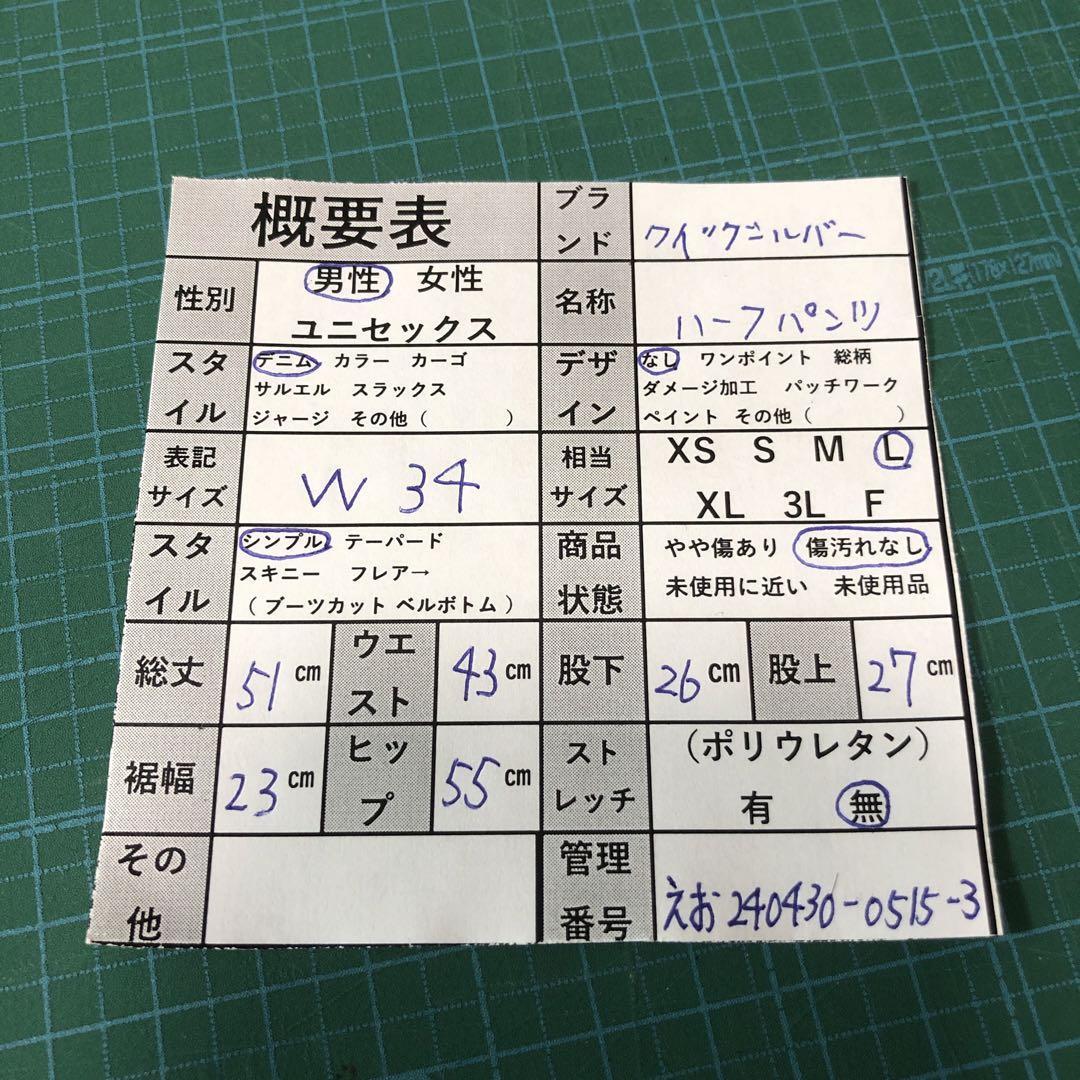 概要表
ブランド クイックシルバー
性別 男性 女性
ユニセックス
名称 ハーフパンツ
スタイル デニム カラー カーゴ
サルエル スラックス
ジャージ その他( )
デザイン なし ワンポイント 総柄
ダメージ加工 パッチワーク
ペイント その他( )
表記サイズ W 34
相当サイズ XS S M L
XL 3L F
スタイル シンプル テーパード
スキニー フレア→
(ブーツカット ベルボトム)
商品状態 やや傷あり 傷汚れなし
未使用に近い 未使用品
総丈 51cm ウエスト 43cm 股下 26cm 股上 27cm
裾幅 23cm ヒップ 55cm
ストレッチ (ポリウレタン)
有 無
その他
管理番号 えお240430-0515-3